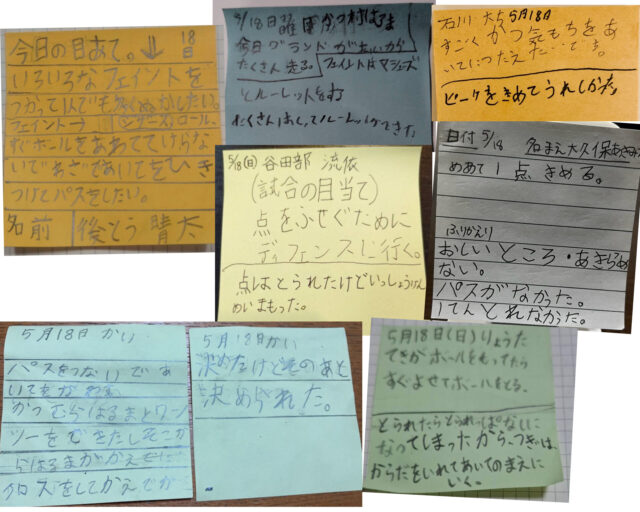 今日の目あて。↓ 18日
いろいろなフェイントを
つかって1人でも多くぬかしたい。
フェイント→ シザーズ、ロール、
すぐボールをああててけらな
いであさであいてをひき
つけてパスをしたい。
名前 後とう 晴太
5/18日曜日 かつ村はるま
今日グランドが広いから
たくさん走る。フェイントはマシューズ
とルーレットをする
たくさんはしってルーレットができた
石川 大ち 5月18日
すごくかつ気もちをあ
いてにつたえたいです。
ピークをきめてうれしかった
5/18(日) 谷田部 流依
(試合の目当て)
点をふせぐために
ディフェンスに行く。
点はとうれたけどいっしょうけん
めいまもった。
日付 5/18 名まえ 大久保あきみつ
めあて 1点きめる。
ふりかえり
おしいところ・あきらめ
ない。
パスがなかった。
してんとれなかった。
5月18日 かい
パスをつないであ
いてをか
かつむらはるまとワン
ツーをできたしそこか
らはるまがかえ
クロスをしてかえでが
5月18日かい
決めたけどそのあと
決められた。
5月18日(日)りょうた
てきがボールをもってたら
すぐよせてボールをとる。
とられたらとられっぱなしに
なってしまったから、つぎは
からだをいれてあいてのまえに
いく。